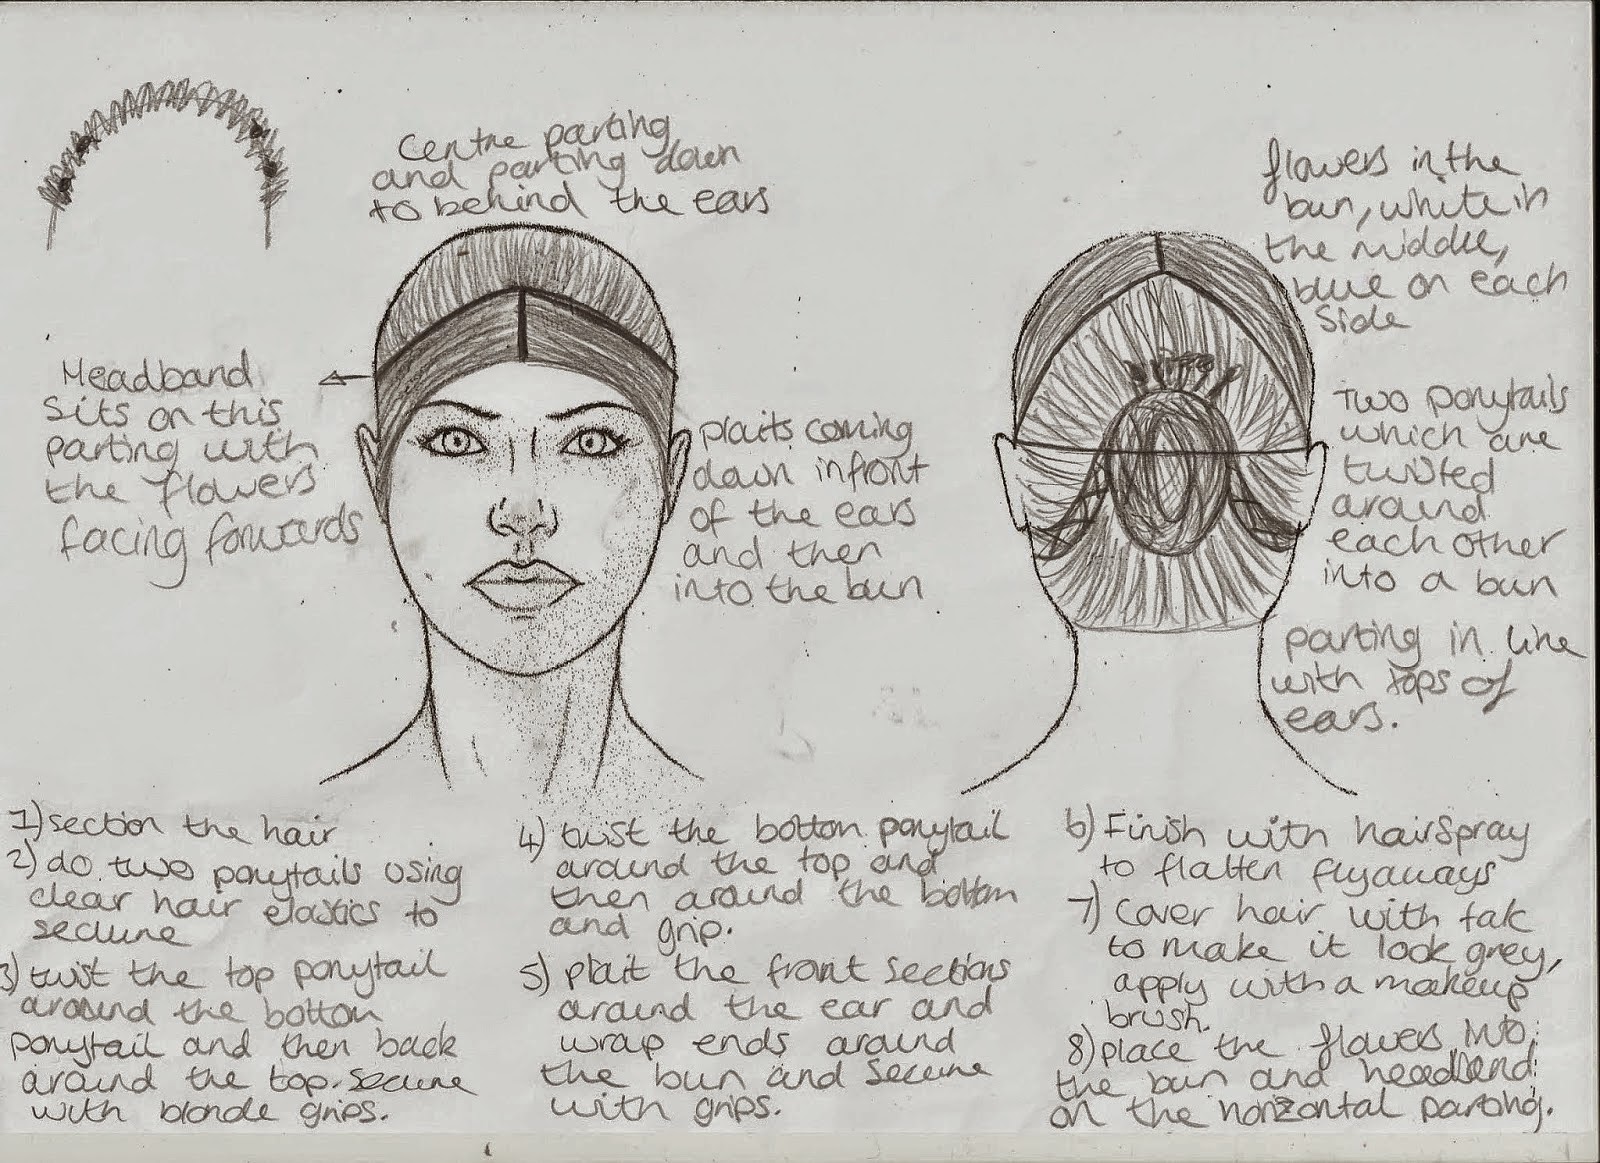 Centre parting
and parting down
to behind the ears
Headband
sits on this
parting with
the flowers
facing forwards
plaits coming
down infront
of the ears
and then
into the bun
flowers in the
bun, white in
the middle,
blue on each
side
Two ponytails
which are
twisted
around
each other
into a bun
parting in line
with tops of
ears.
1) section the hair
2) do two ponytails using
clear hair elastics to
secure
3) twist the top ponytail
around the bottom
ponytail and then back
around the top. secure
with blonde grips.
4) twist the bottom ponytail
around the top and
then around the bottom
and grip.
5) plait the front sections
around the ear and
wrap ends around
the bun and secure
with grips.
6) Finish with hairspray
to flatten flyaways
7) Cover hair with talc
to make it look grey,
apply with a makeup
brush.
8) place the flowers into
the bun and headband
on the horizontal parting.